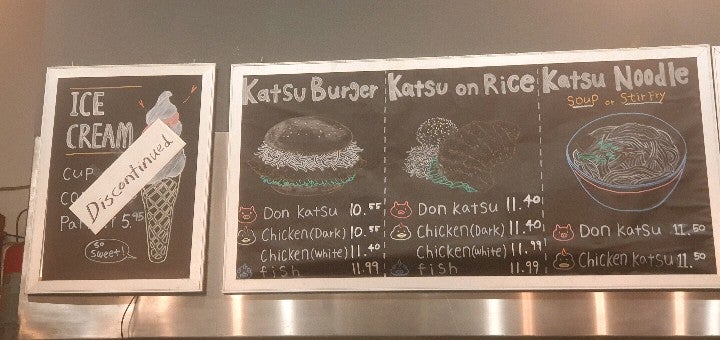 ICE
CREAM
CUP
Discontinued
5.95
So
Sweet!
Katsu Burger
Don Katsu 10.55
Chicken(Dark) 10.55
Chicken(white) 11.40
fish 11.99
Katsu on Rice
Don Katsu 11.40
Chicken(Dark) 11.40
Chicken(white) 11.99
fish 11.99
Katsu Noodle
Soup or Stir Fry
Don Katsu 11.50
Chicken Katsu 11.50